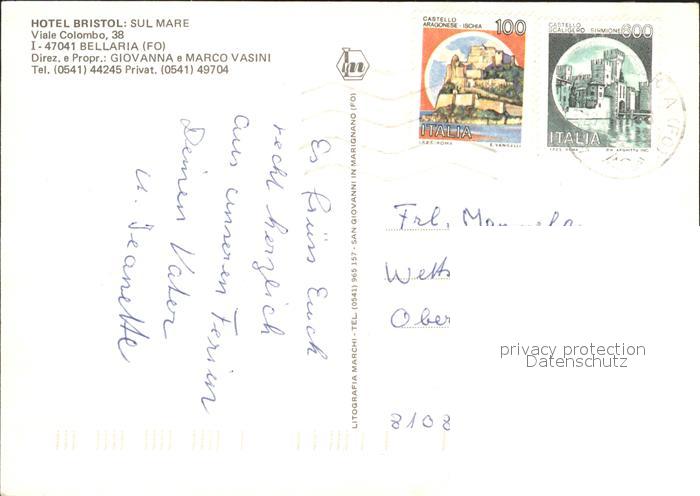 HOTEL BRISTOL: SUL MARE
Viale Colombo, 38
I - 47041 BELLARIA (FO)
Direz. e Propr.: GIOVANNA e MARCO VASINI
Tel. (0541) 44245 Privat. (0541) 49704
Es grüss Euch
recht herzlich
aus unseren Ferien
Deinen Vater
u. Jeanette
LITOGRAFIA MARCHI - TEL. (0541) 965 157 - SAN GIOVANNI IN MARIGNANO (FO)
CASTELLO
ARAGONESE - ISCHIA
100
ITALIA
I.P.Z.S. ROMA E. VANGELLI
CASTELLO
SCALIGERO SIRMIONE
600
ITALIA
I.P.Z.S. ROMA
Frl.
Wett
Ober
8102
privacy protection
Datenschutz